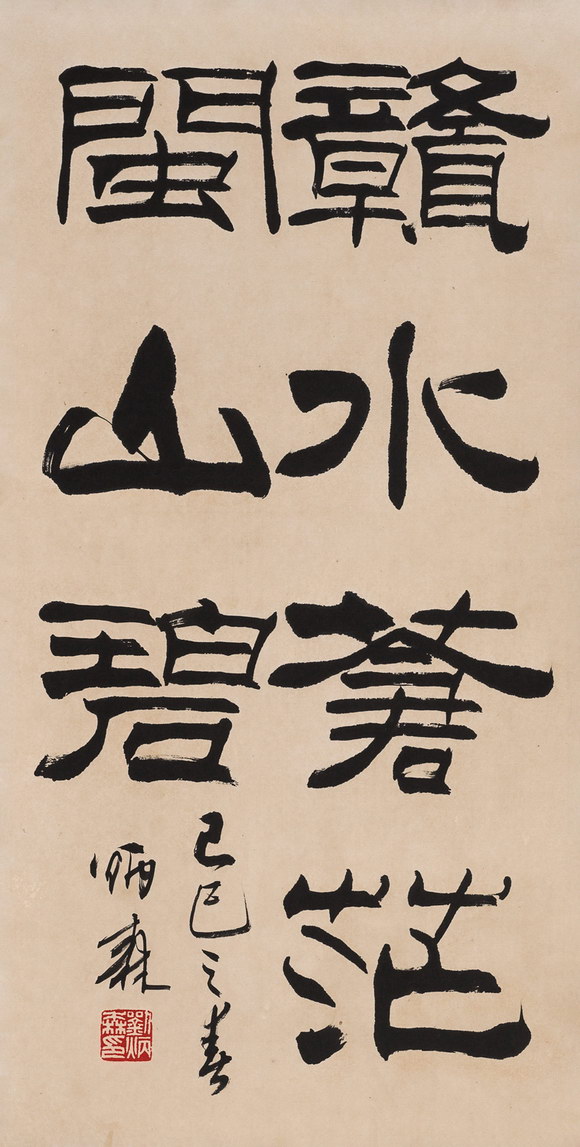 贛水蒼茫
閩山碧
己巳之春
炳森
劉炳森印